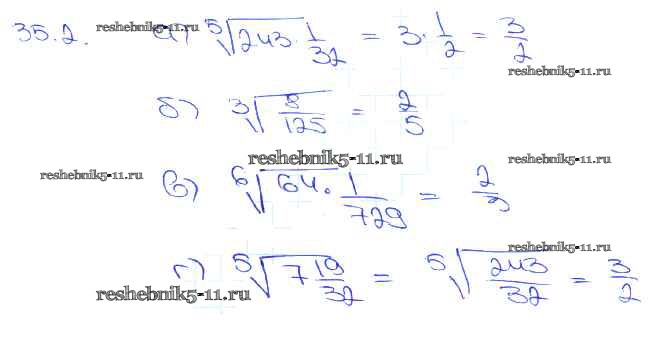 35.2. а) ⁵√(243 · 1/32) = 3 · 1/2 = 3/2
reshebnik5-11.ru
reshebnik5-11.ru
б) ³√(8/125) = 2/5
reshebnik5-11.ru
reshebnik5-11.ru
reshebnik5-11.ru
в) ⁶√(64 · 1/729) = 2/3
reshebnik5-11.ru
г) ⁵√(7 19/32) = ⁵√(243/32) = 3/2
reshebnik5-11.ru